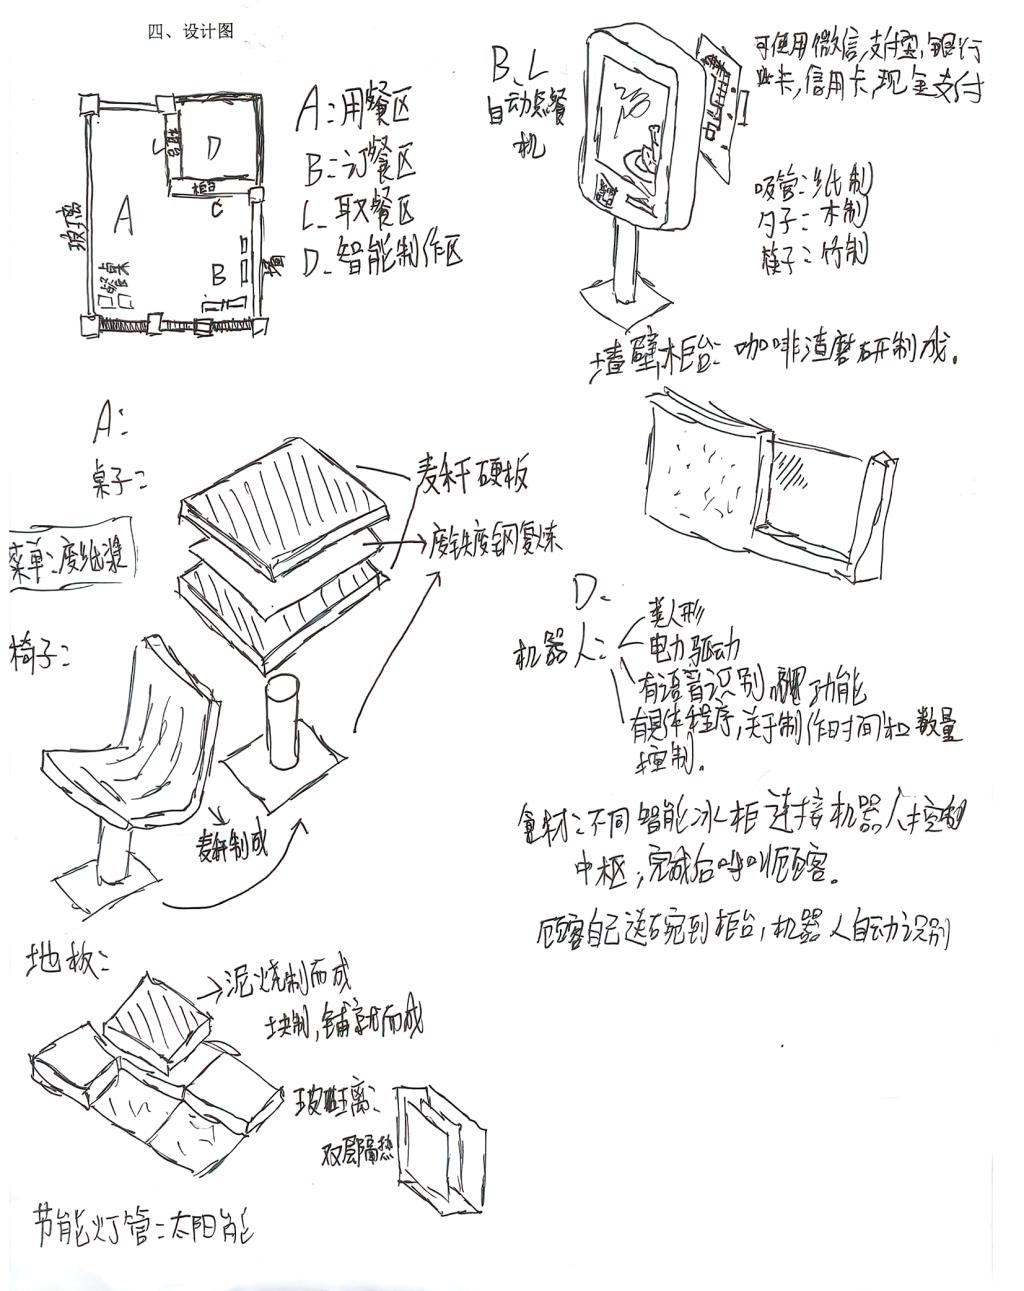 四、设计图
A:用餐区
B:订餐区
C.取餐区
D.智能制作区
玻璃
A
D
柜台
柜台
C
B
墙
餐桌
B、C
自动点餐
机
可使用微信,支付宝,银行
卡,信用卡,现金支付
吸管:纸制
勺子:木制
筷子:竹制
墙壁,柜台:咖啡渣磨研制成。
A:
桌子:
麦秆硬板
废铁废钢复炼
菜单:废纸浆
椅子:
麦秆制成
D.
机器人:
类人形
电力驱动
有语音识别,功能
有具体程序,关于制作时间和数量
控制。
食材:不同智能冰柜连接机器人控制
中枢,完成后呼叫顾客。
顾客自己送碗到柜台,机器人自动识别
地板:
泥烧制而成
块制,铺就而成
玻璃:
双层隔热
节能灯管:太阳能